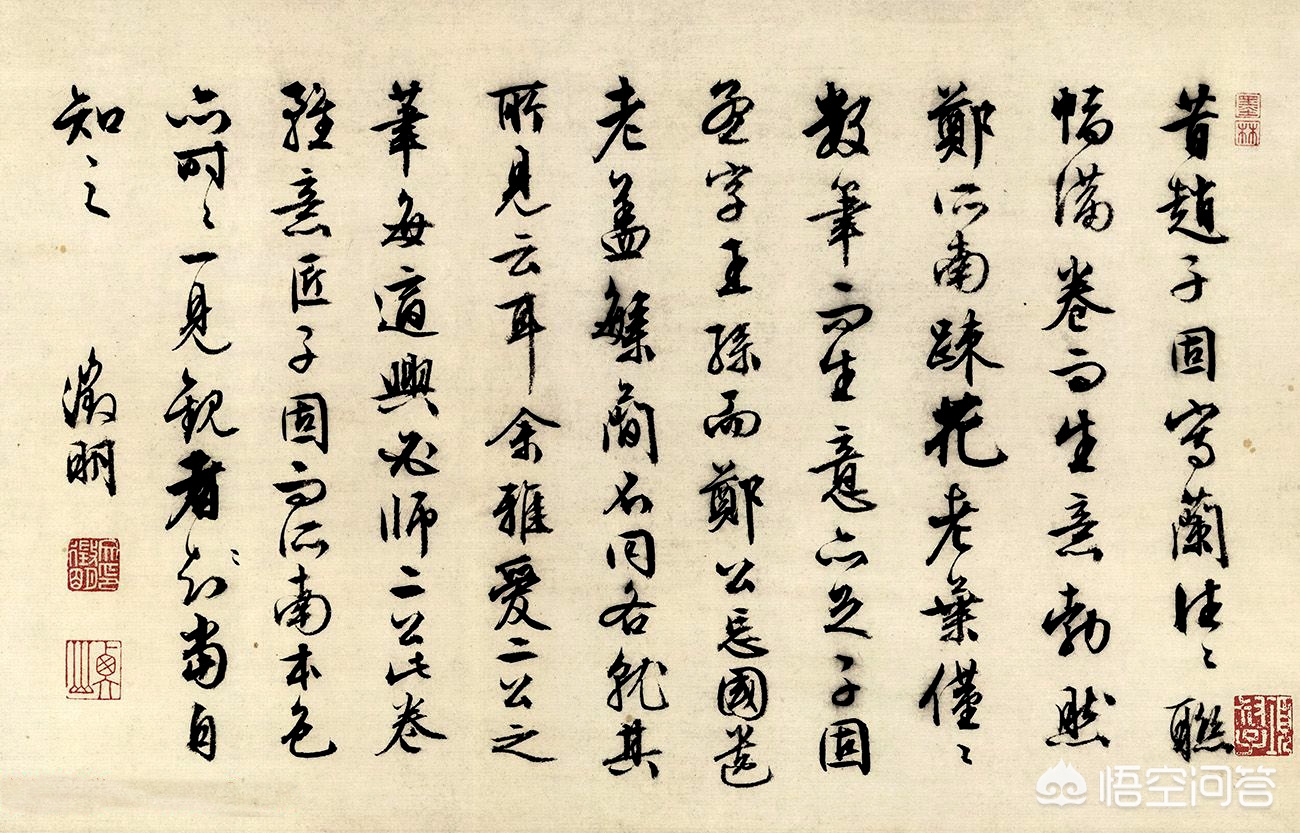 昔趙子固寫蘭往〻聯
幅滿卷而生意勃然
鄭所南疎花老葉僅〻
數筆而生意亦足子固
孟字王孫而鄭公忘國遺
老蓋繁簡不同各就其
所見云耳余雅愛二公之
筆每適興必師二公此卷
雖意匠子固而所南本色
亦時〻一見觀者當自
知〻之
徵明
墨林
悟空问答